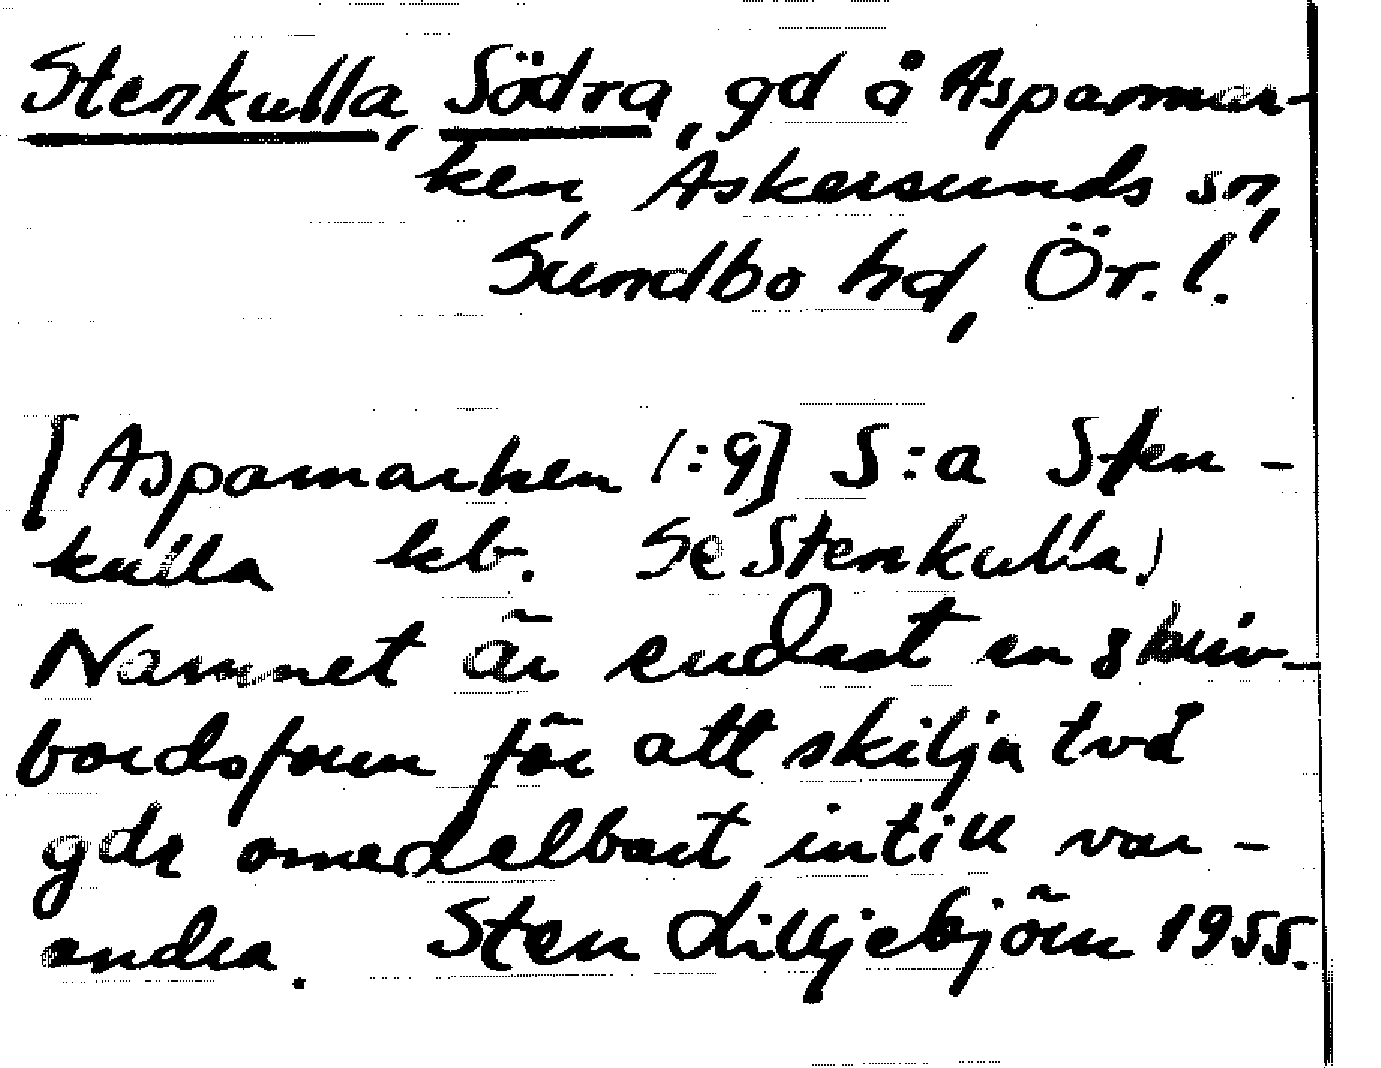 Stenkulla, Södra, gd å Aspamar-
ken, Askersunds sn,
Sundbo hd, Ör. l.
[Aspamarken 1:9] S:a Sten-
kulla kb. Se Stenkulla!
Namnet är endast en skriv-
bordsform för att skilja två
gdr omedelbart intill var-
andra. Sten Lilljebjörn 1955.